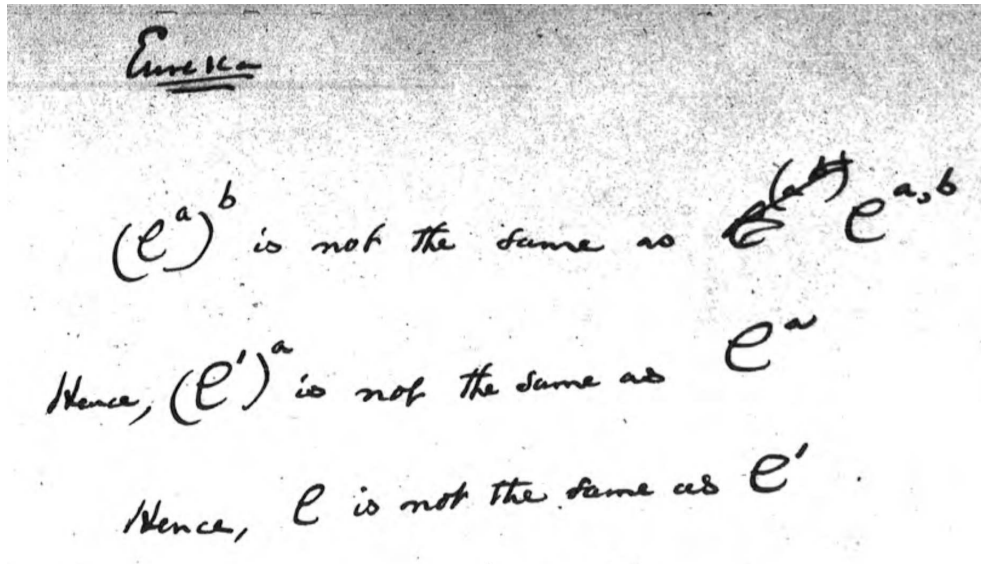 Eureka
(e^a)^b is not the same as e^(a b) e^a,b
Hence, (e')^a is not the same as e^a
Hence, e is not the same as e'.